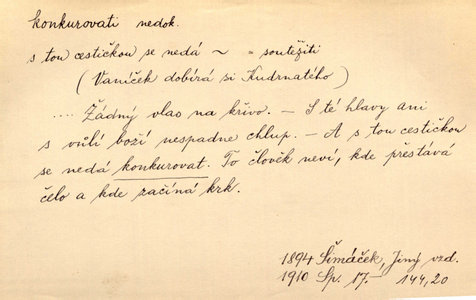 konkurovati nedok.
s tou cestičkou se nedá ~ = soutěžiti
(Vaníček dobírá si Kudrnatého)
.... Žádný vlas na křivo. – S té hlavy ani
s vůlí boží nespadne chlup. – A s tou cestičkou
se nedá konkurovat. To člověk neví, kde přestává
čelo a kde začíná krk.
1894 Šimáček, Jiný vzd.
1910 Sp. 17. – 144,20